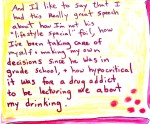 And I'd like to say that I
had this Really great speech
about how I'm not his
"lifestyle special" foil, how
I've been taking care of
myself & making my own
decisions since he was in
grade school, & how hypocritical
it was for a drug addict
to be lecturing me about
my drinking.